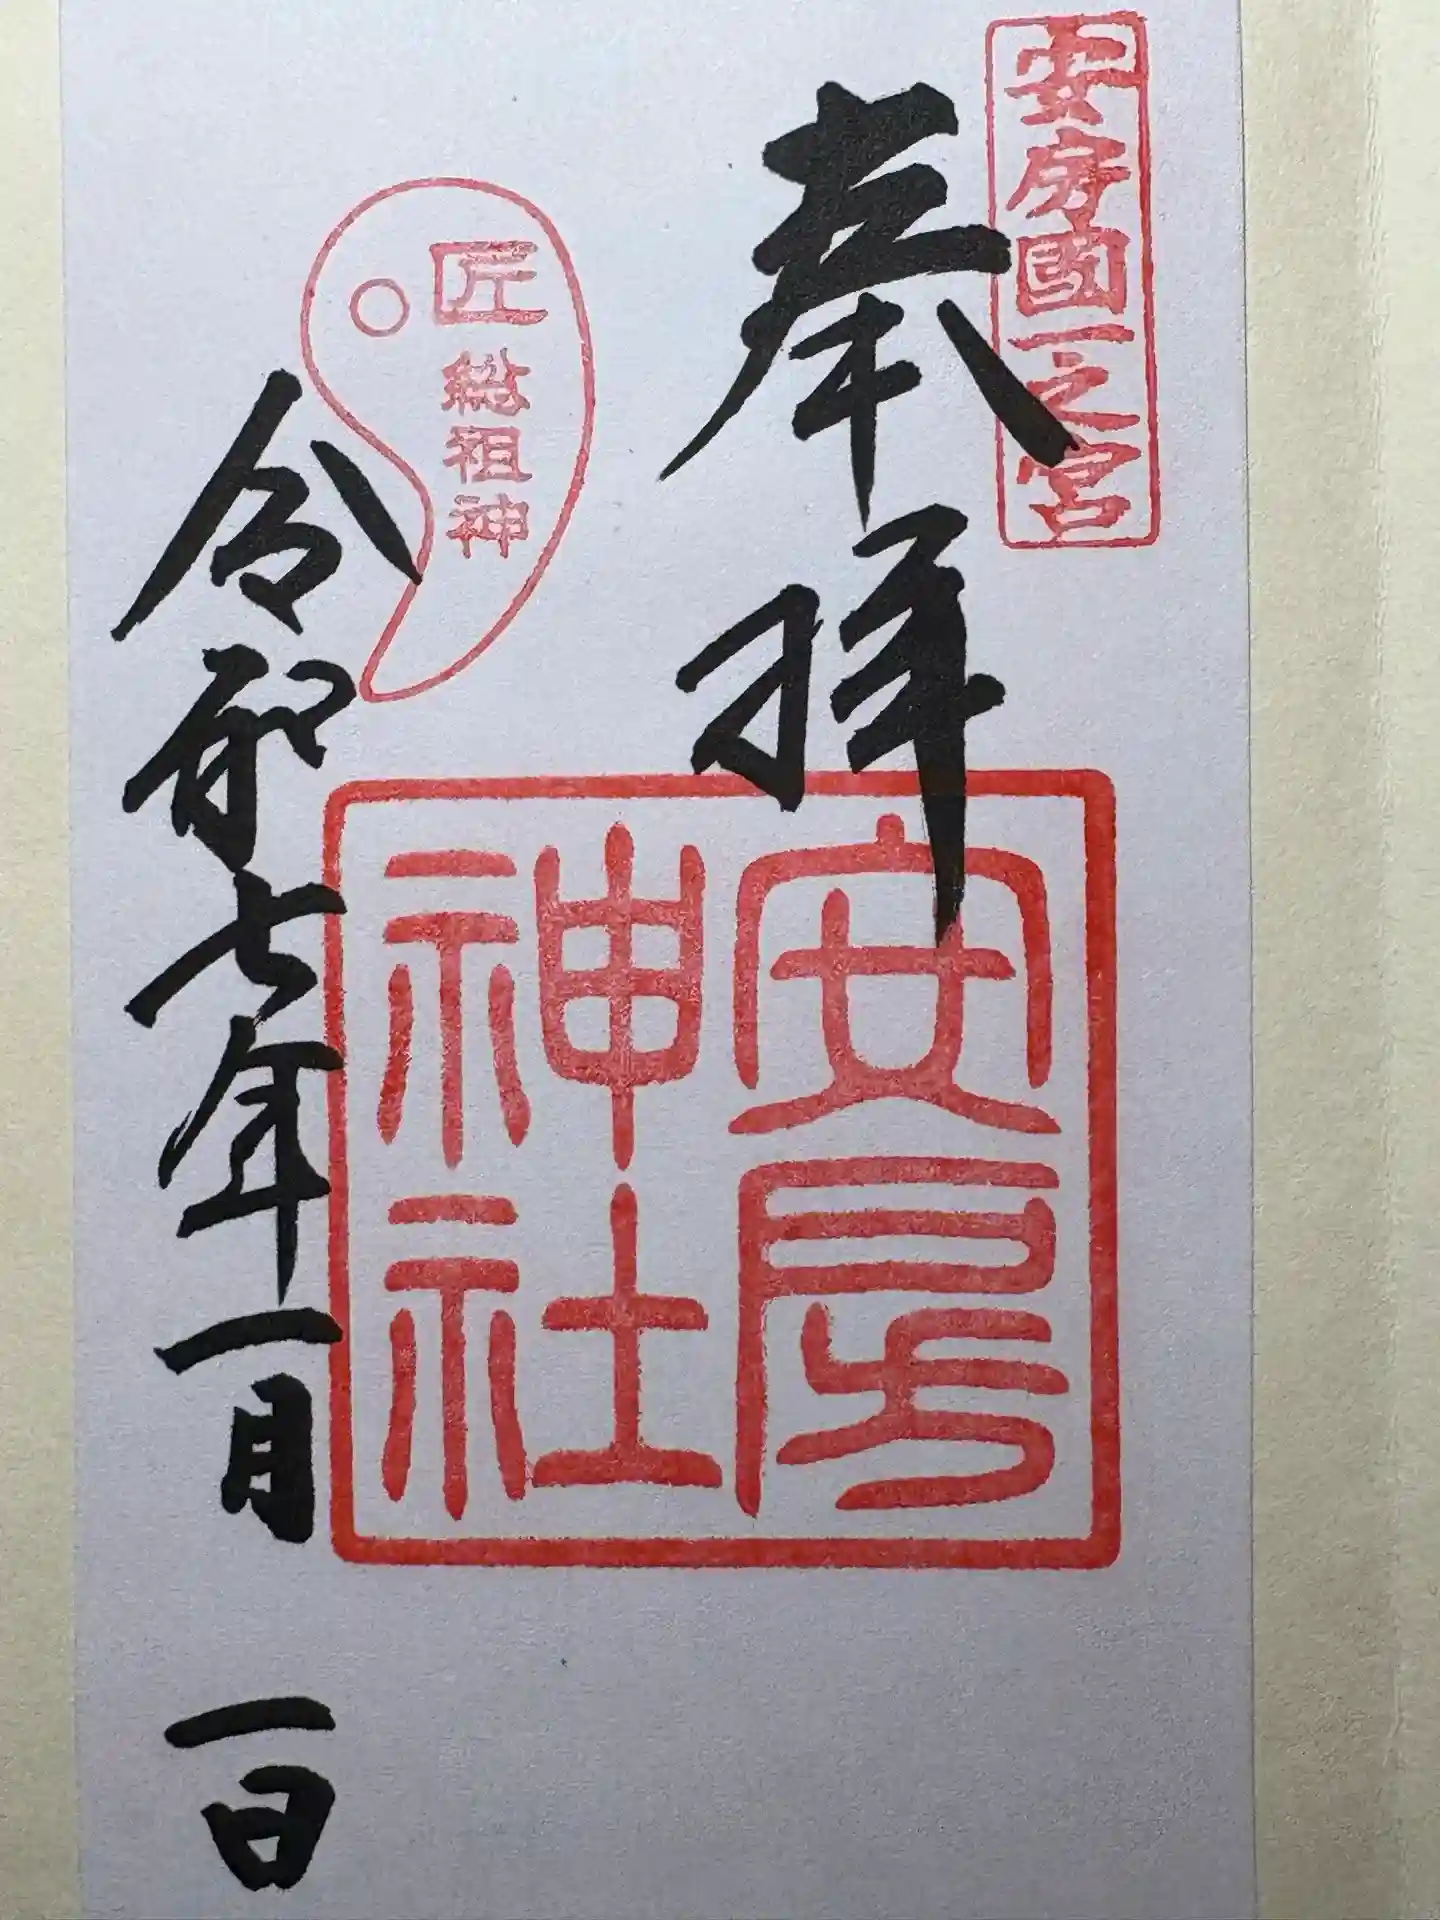 安房國一之宮
奉拝
安房
神社
匠総祖神
令和七年一月一日